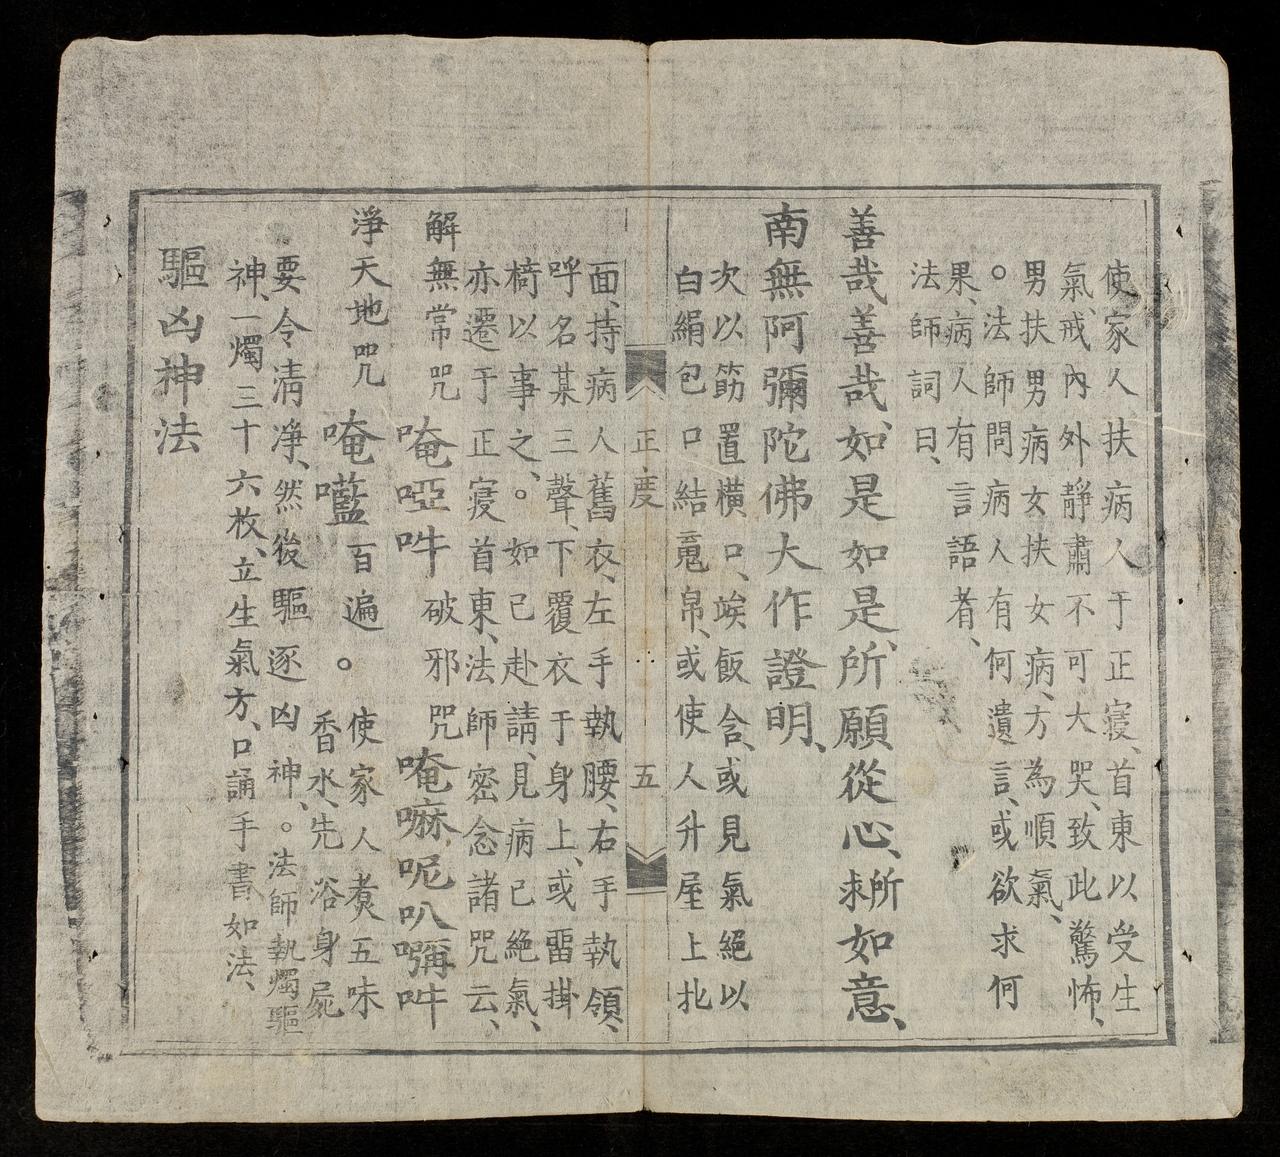 使家人扶病人于正寢、首東以受生
氣、戒內外靜肅不可大哭、致此驚怖、
男扶男病女扶女病、方為順氣、
○法師問病人有何遺言、或欲求何
果、病人有言語者、
法師詞曰、
善哉善哉、如是如是、所願從心、求所如意、
南無阿彌陀佛大作證明、
次以筯置橫口、竢飯含、或見氣絕以
白絹包口結䰟帛、或使人升屋上北
正度 五
面、持病人舊衣、左手執腰、右手執領、
呼名某三聲、下覆衣于身上、或畱掛
椅以事之、○如已赴請、見病已絕氣、
亦遷于正寢首東、法師密念諸咒云、
解無常咒 唵啞吽 破邪咒 唵嘛呢叭嚩吽
淨天地咒 唵㘕 百遍 ○使家人煑五味
香水、先浴身屍
要令清净、然後驅逐凶神、○法師執燭驅
神、一燭三十六枚、立生氣方、口誦手書如法、
驅凶神法